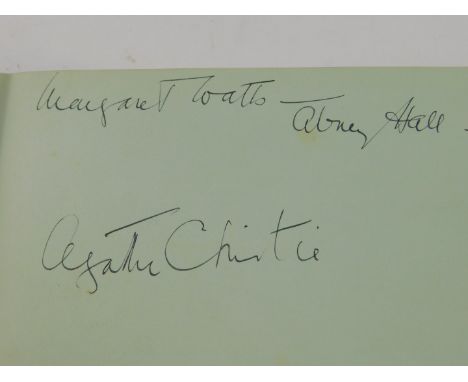 Margaret Watts —
Abney Hall -
Agatha Christie